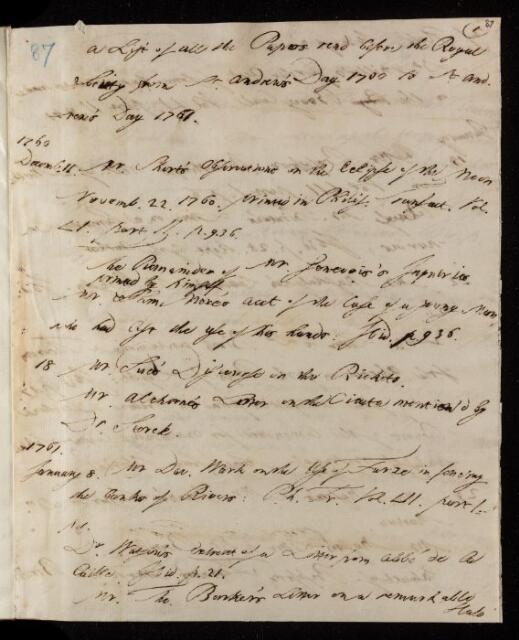 87
87
1
a List of all the Papers read before the Royal
Society from St. Andrew's Day 1760 to St. And-
-rew's Day 1761.
1760
Decemb. 11. Mr. Short's Observations on the Eclipse of the Moon
Novemb. 22. 1760. printed in Philos. Transact. Vol.
LI. Part II. p. 936.
The Remainder of Mr. Inquiries
printed by himself
Mr. More's acct of the Case of a young Man
who had lost the use of his hands. Ibid. p. 936.
18 Mr. Discourse on the Rickets.
Mr. Letter on the Cicuta mention'd by
Dr. Storck.
1761.
January 8. Mr Dav. Wark on the Use of Furze in fencing
the Banks of Rivers: Ph. Tr. Vol. LII. part I.
p. 1.
Dr. Watson's extract of a Letter from abbé de la
Caille. Ibid. p. 21.
Mr. Tho. Barker's Letter on a remarkable
Halo